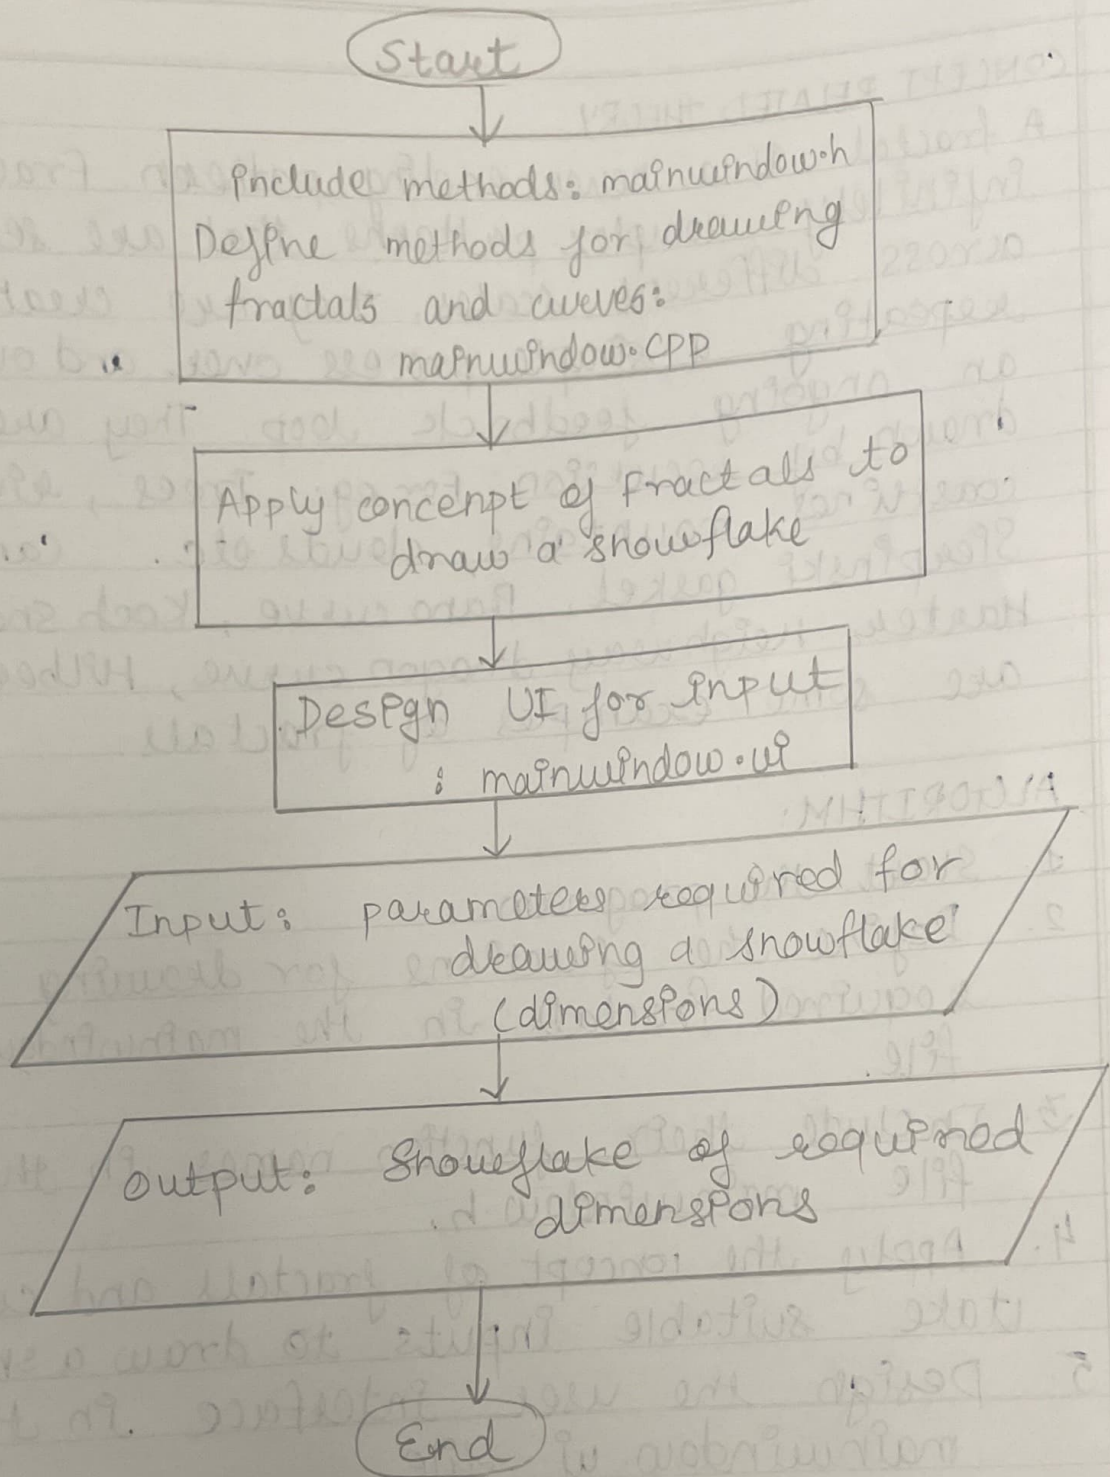 Start
include methods: mainwindow.h
Define methods for drawing
fractals and curves:
mainwindow.cpp
Apply concenpt of fractals to
draw a snowflake
Design UI for input
: mainwindow.ui
Input: parameters required for
drawing a snowflake
(dimensions)
Output: Snowflake of required
dimensions
End